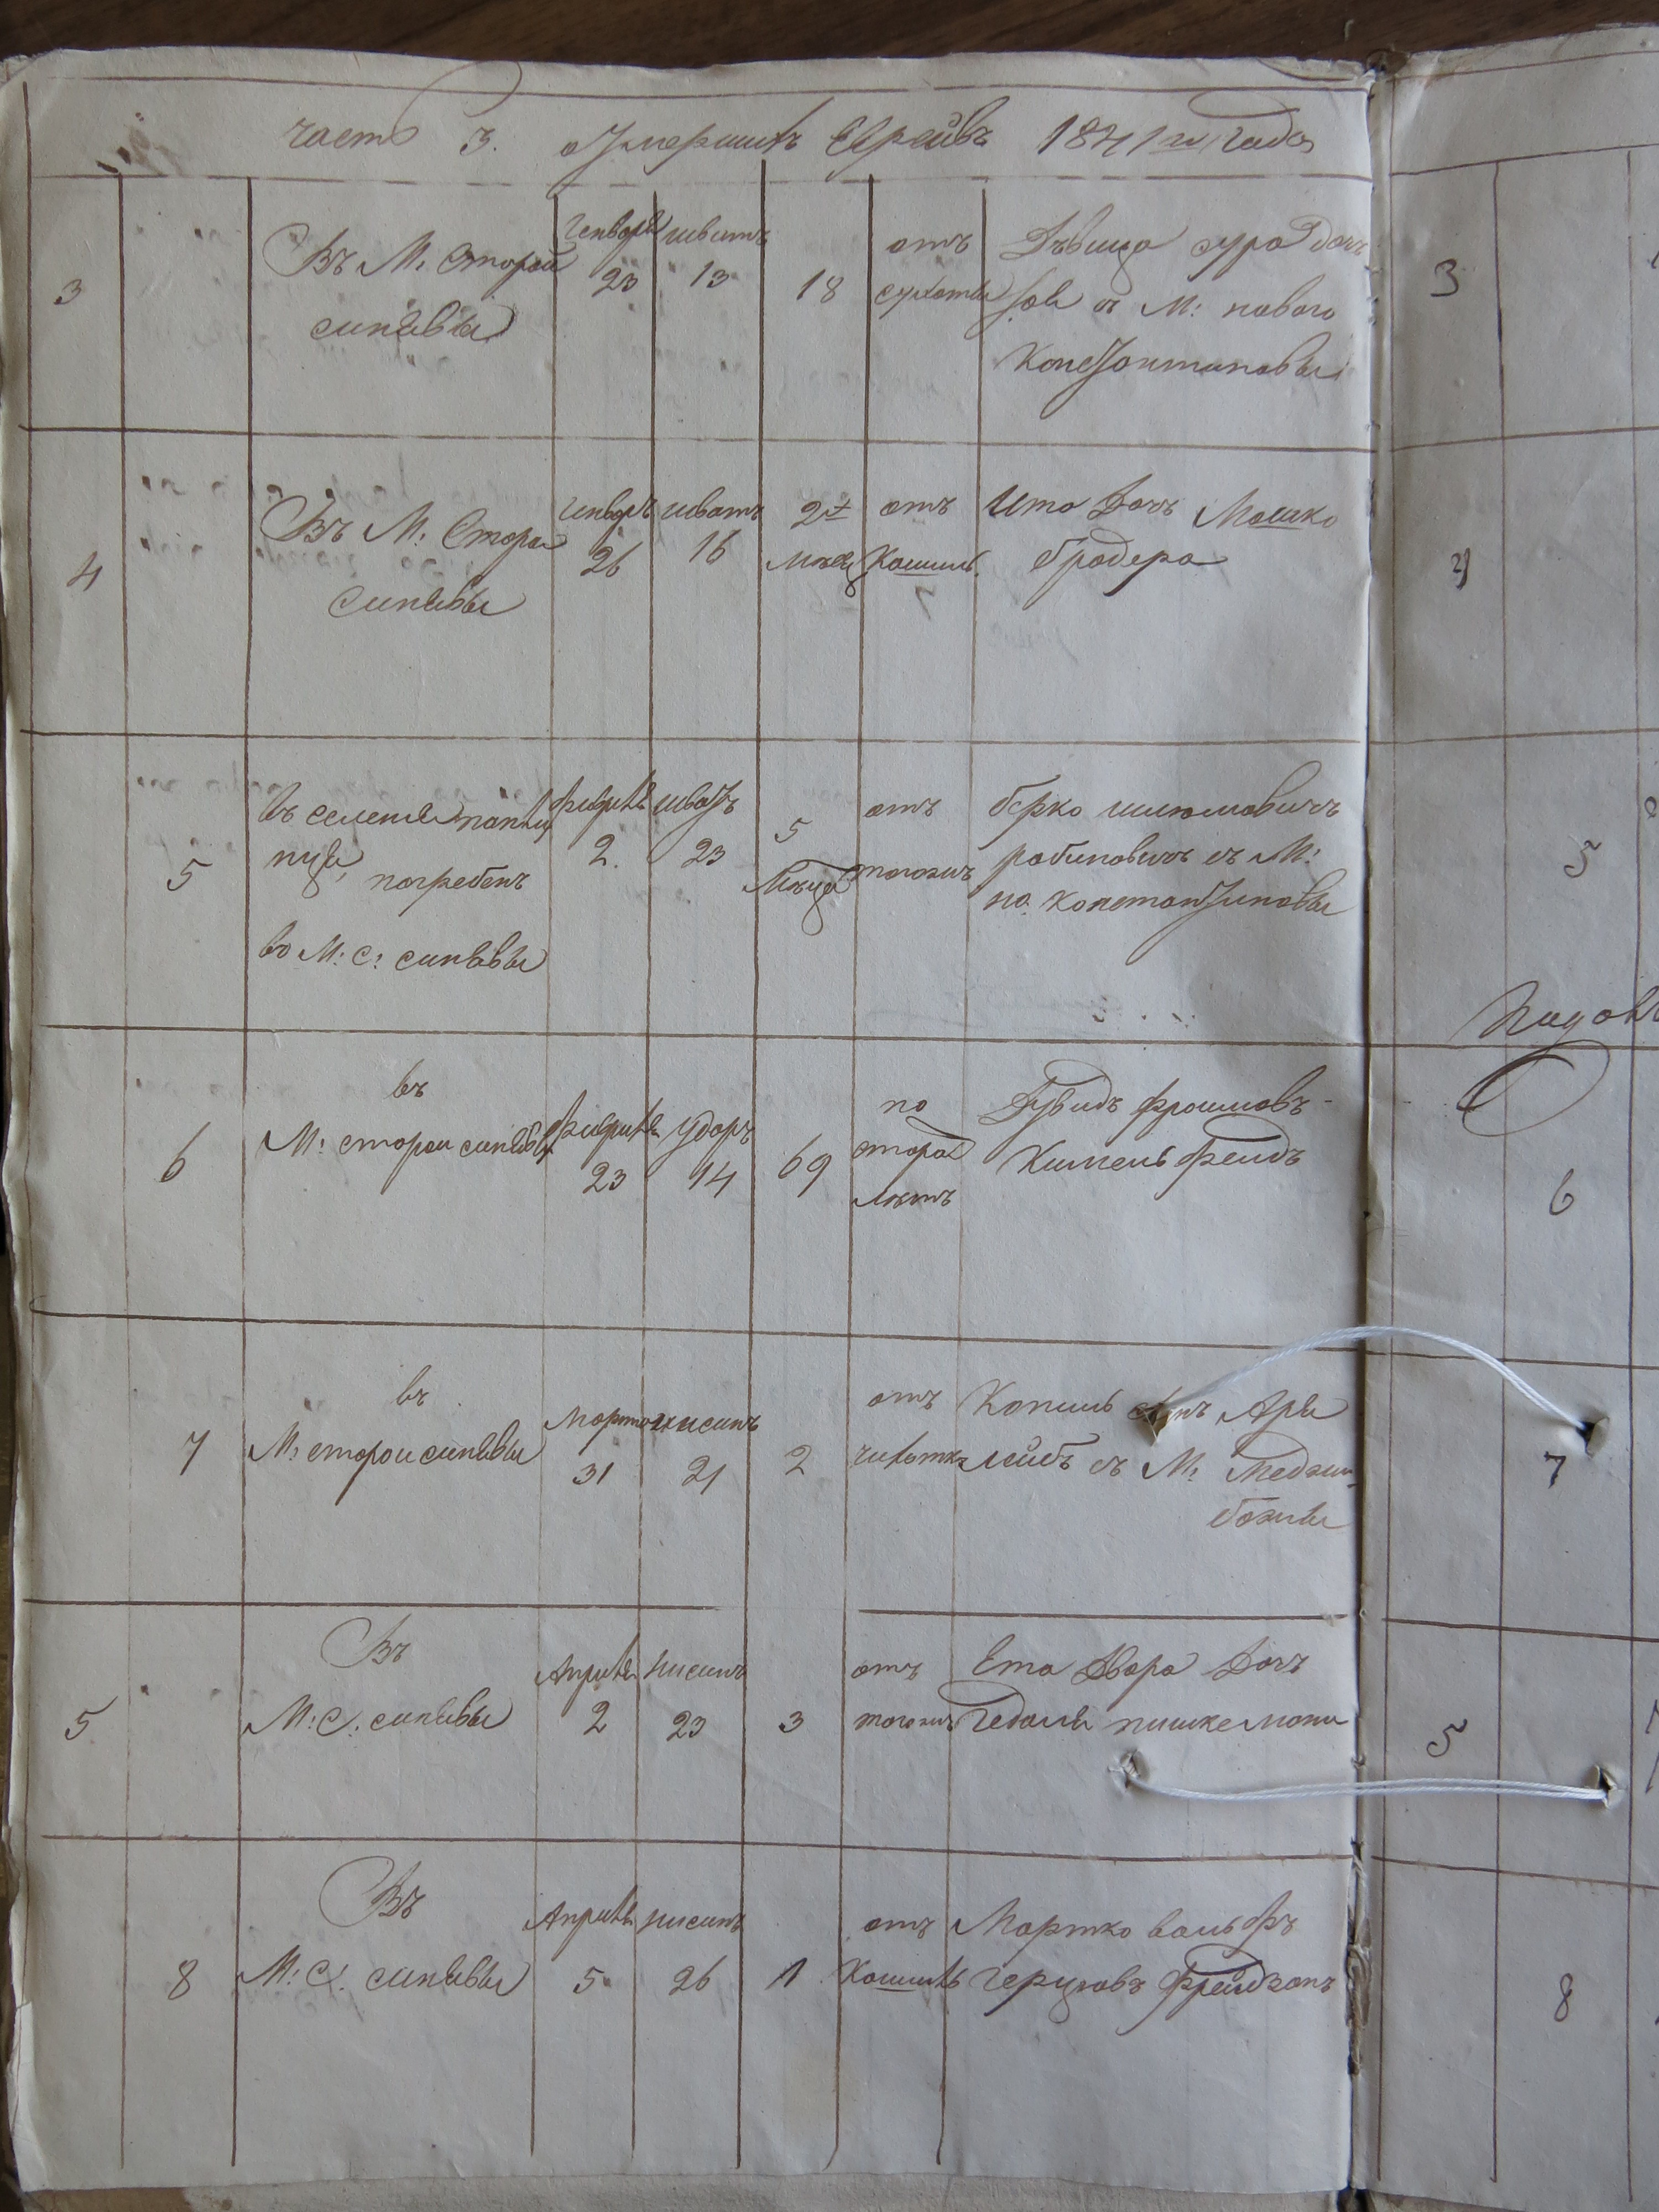 часть 3. Умершихъ Евреивъ 1841го года
3
Въ М. Старой
синявы
Генворя
23
шватъ
13
18
отъ
сухоты
Дѣвица сура дочь
съ М: нового
Констонтиновы
3
4
Въ М: Старои
Синявы
Генворь
26
шватъ
16
2х
мѣсец
отъ
Кошиль
Ита Дочь Мошко
бродера
4
5
въ селеніи
погребенъ
во М: С: синявы
февриля
2.
шватъ
23
5
Мѣсца
отъ
тогожъ
берко шлюмовичъ
рабиновичъ съ М:
но. константиновы
5
6
въ
М: старои синявы
февриля
23
удоръ
14
69
по
старо
лѣтъ
Дувидъ фроимовъ
Кимельфелдъ
6
7
въ
М: старои синявы
Марта
31
нисинъ
21
2
отъ
чихотки
Копиль сынъ Арія
лейбъ съ М: Меджи
божия
7
5
Въ
М: С: синявы
Априля
2
нисинъ
23
3
отъ
тогожъ
Ета Двора Дочь
Гедалія пишкемони
5
8
Въ
М: С: синявы
Априля
5
нисинъ
26
1
отъ
Кошиль
Мортко вольфъ
Герцковъ Фрейдзонъ
8